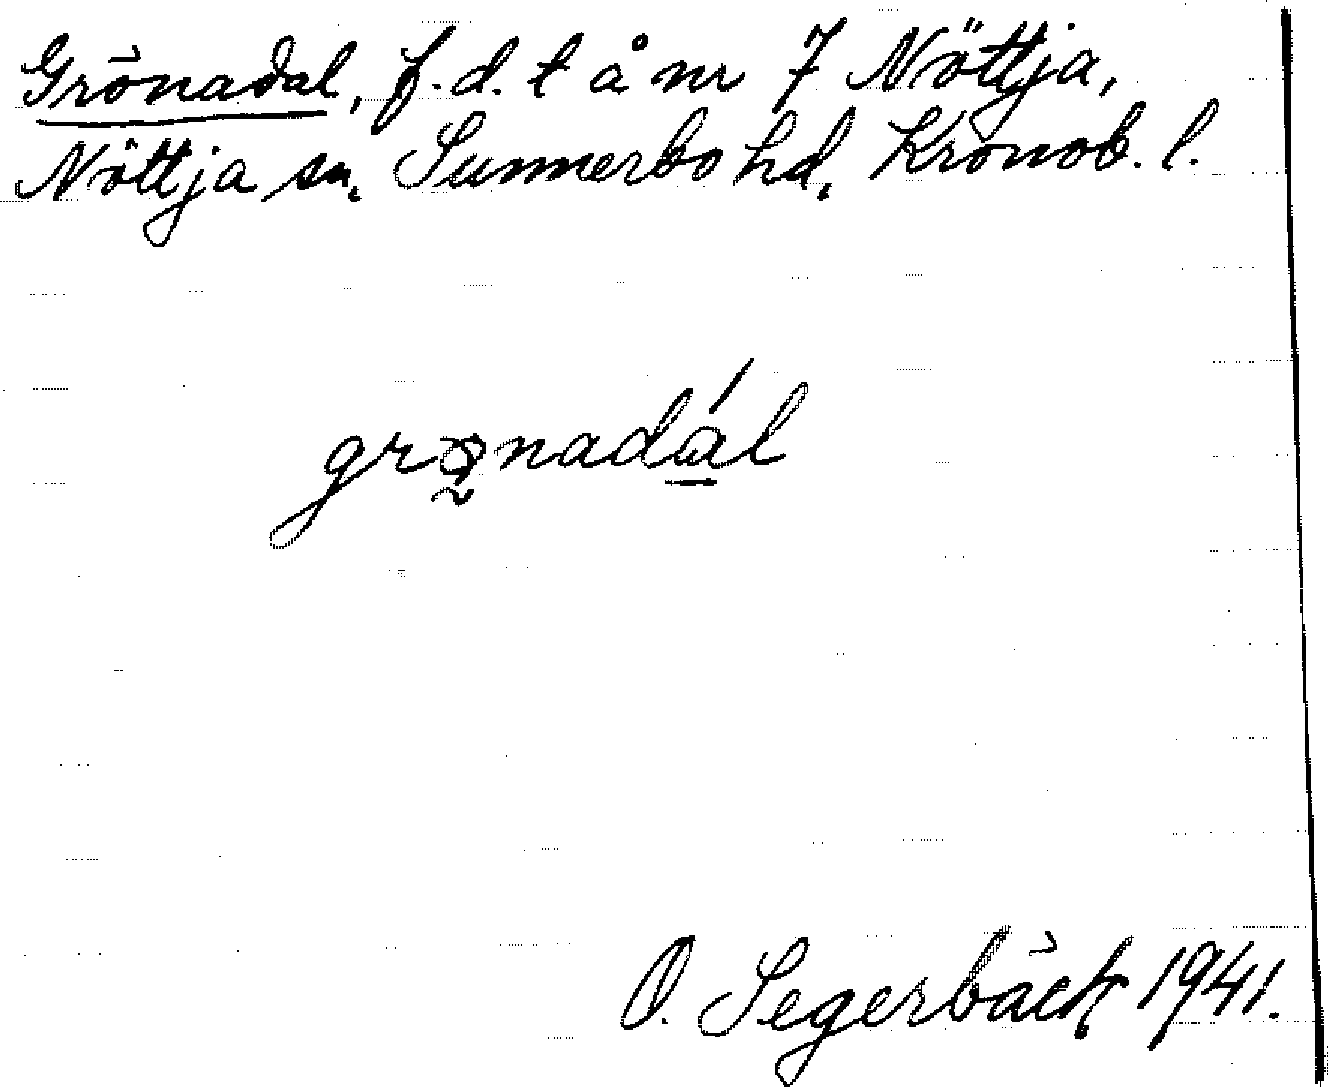 Grönadal, f.d. t å nr 7 Nöttja,
Nöttja sn, Sunnerbo hd, Kronob. l.
grønadál
O. Segerbäck 1941.